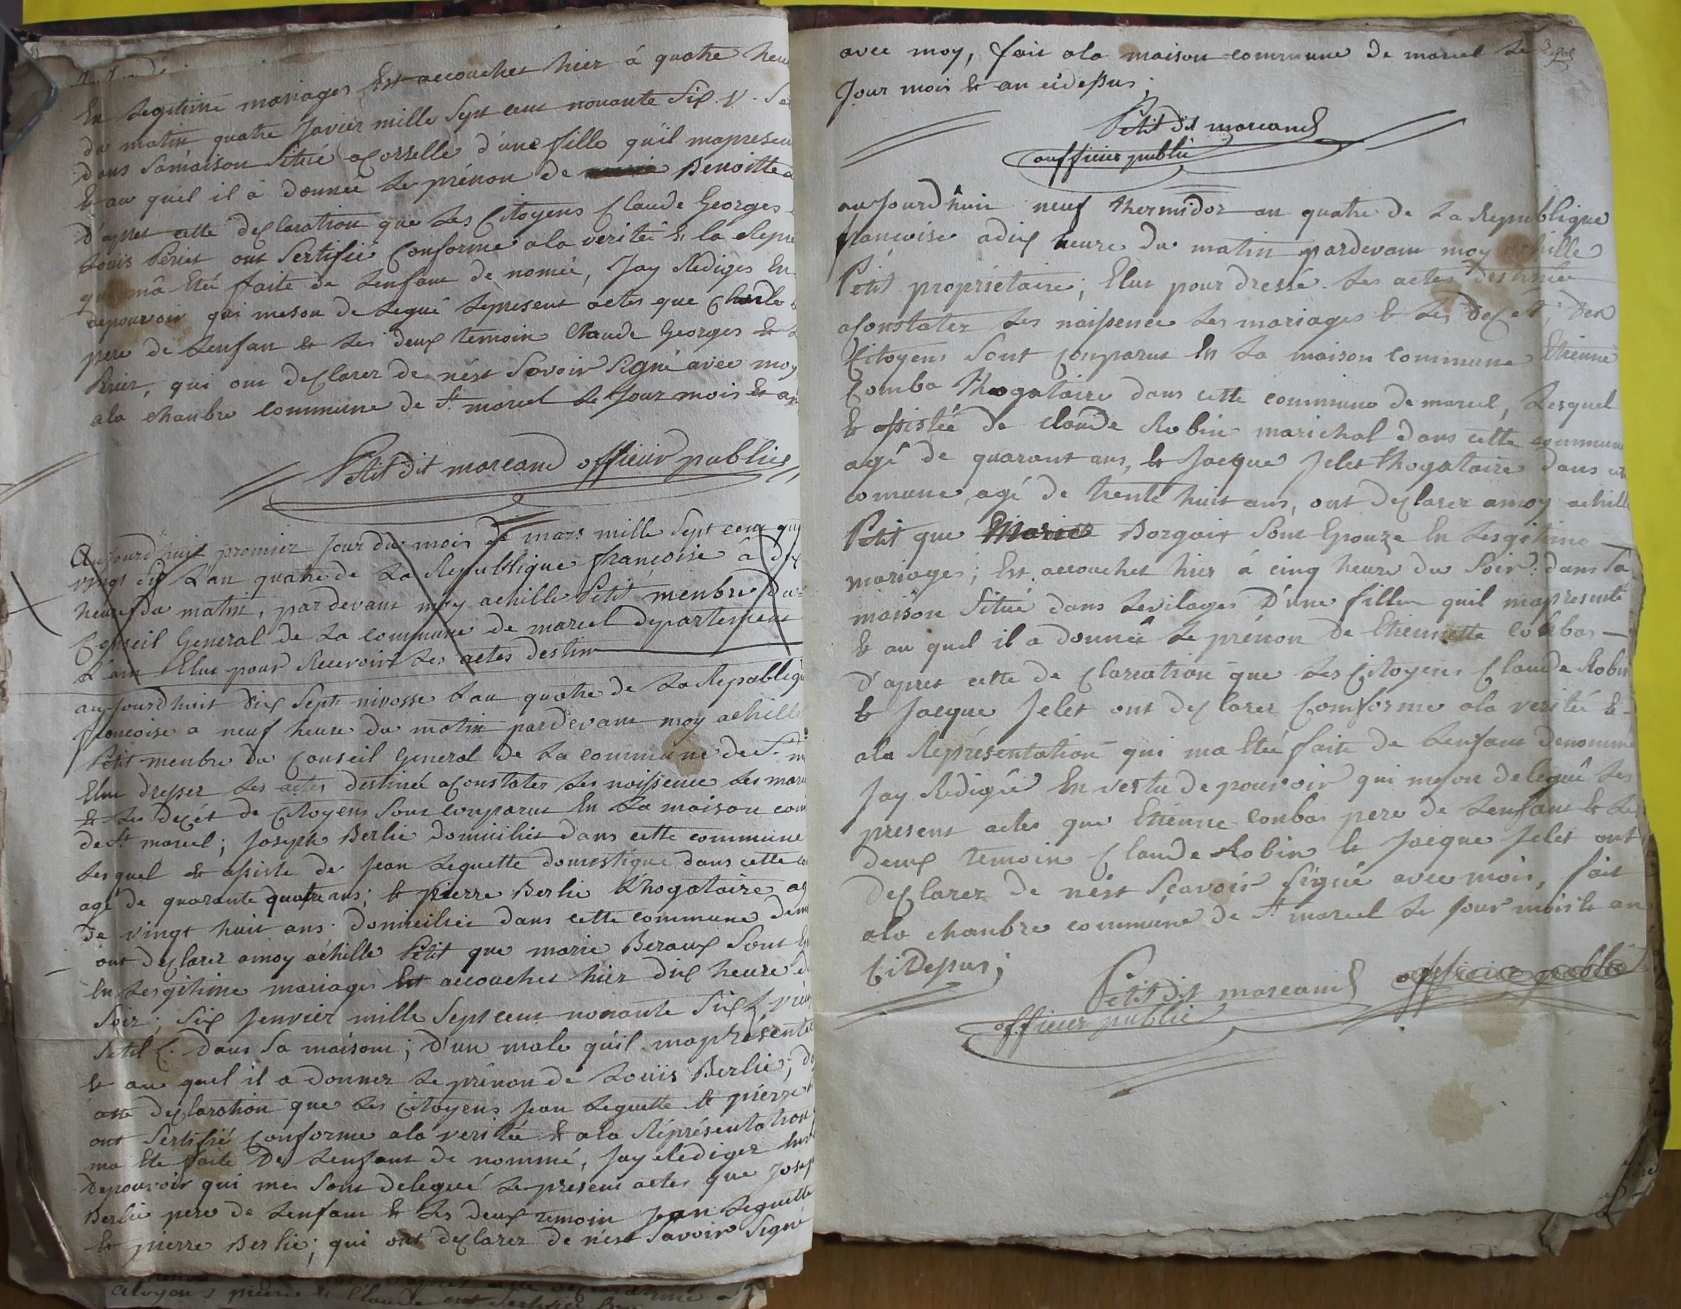 En Legitime mariages Est accouchet hier à quatre heu
du matin quatre Javier mille Sept cent nonante Six
dans Samaison Situé a Corselle d'une fille qu'il mapresen
& au quel il à donnée Le prénon de Benoitte
D'apres cette declaration que Les Citoyens Claude Georges
Louis Périer ont Sertifié Conforme ala verité & la Repre
qui mà Eté faite de Lenfant de nomée, Jay Rediges En
depouvoir qui meson delegué Lepresent actes que
pere de Lenfant & Les deux temoin Claude Georges &
Périer, qui ont declarer de nést Savoir Signé avec moy
ala chanbre Commune de St marcel Le Jour mois & an
Petit dit marcand officier publie
Aujourd'huit promier Jour du mois de mars mille Sept cent qua
vingt dix L'an quatre de La Republique françoise à dix
heure du matin, pardevant moy achille Petit menbre du
Conseil General de La commune de marcel departement
L'ain Elue pour Recevoir Les actes destin
aujourdhuit dix Sept nivosse Lan quatre de La Republiqu
françoise a neuf heure du matin pardevant moy achille
Petit menbre du Conseil General de La commune de St m
Elue dresser Les actes destinée aConstater Les naissence Les mari
& Les décét de Citoyens Sont conparut En La maison com
de St marcel; Joseph Berlie domicilié dans cette commune
Lesquel & assiste de Jean Leguette domestique dans cette co
agé de quarante quatre ans; & pierre Berlie Thogataire ag
de vingt huit ans domicilier dans cette commune
ont declarer amoy achille Petit que marie Beraux Sont E
En Lesgitime mariages Est accouchet hier dix heure d
Soir; Six Jenvier mille Sept cent nonante Six
Dans Sa maisont; d'un male qúil mapresente
& au quel il a donner Le prénon de Louis Berlie; d
cette declarathion que Les Citoyens Jean Leguette & pierre
ont Sertifié Conforme ala veritée & ala Réprésentathion
ma Eté faite De Lenfant de nommé, Jay Rediger En
Depouvoir qui mes Sont delegué Lepresent actes que Josep
Berlie pere de Lenfant & Les deux temoin Jean Leguette
& pierre Berlie; qui ont declarer de nést Savoir Signé
avec moy, fait ala maison commune de marcel Le
Jour mois & an cidessus;
Petit dit marcand
aufficier publié
aujourdhuit neuf thermidor an quatre de La Republique
françoise adix heure du matin pardevant moy achille
Petit propriétaire; Elut pour dressé Les actes destinée
aConstater Les naissence Les mariages & Les décét; Des
Citoyens Sont Conparut En La maison Commune Etienne
Comba Thogataire dans cette commune de marcel, Lesquel
& assistée de claude Robin marichal dans cette commune
agé de quarant ans, & Jacque Jelet thogataire dans ce
comune agé de trente huit ans, ont declarer amoy achille
Petit que Marie Borgair Sont Epouze En Lesgitime
mariages; Est accouchet hier à cinq heure du Soir dans Sa
maison Situé dans Levilages D'une fille quil mapresenté
& au quel il a donnée Le prénon de Etiennette Combas
D'apres cette declareation que Les Citoyens Claude Robin
& Jacque Jelet ont declarer Comforme ala verité &
ala Représentation qui ma Eté faite de Lenfant denommé
Jay Redigée En vertu depouvoir qui meson delegué Les
present actes que Etienne Conbas pere de Lenfant & Les
deux temoin Claude Robin & Jacque Jelet ont
declarez de nést Séavoir Signé avec mois, fait
ala chanbre commune de St marcel Le Jour mois & an
Ci Depus;
Petit dit marcand officier publié
officier publié